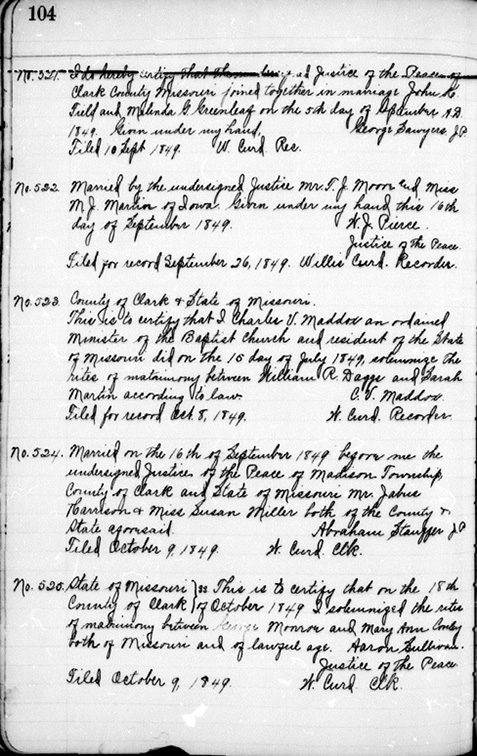 104
No. 521. I do hereby certify That Justice of the Peace of
Clark County Missouri joined together in marriage John
Field and Malinda G. Greenleaf on the 5th day of September A.D.
1849. Given under my hand, George Sawyers, J.P.
Filed 10 Sept 1849. W. Curd Rec.
No. 522. Married by the undersigned Justice Mr. T. J. Moore and Miss
M. J. Martin of Iowa. Given under my hand this 16th
day of September 1849. W. J. Pierce.
Justice of the Peace.
Filed for record September 26, 1849. Willis Curd. Recorder.
No. 523. County of Clark & State of Missouri.
This is to certify that I Charles V. Maddox an ordained
Minister of the Baptist Church and resident of the State
of Missouri did on the 15 day of July 1849, solemnize the
rites of matrimony between William R. Daggs and Sarah
Martin according to law. C. V. Maddox.
Filed for record Oct. 8, 1849. W. Curd Recorder
No. 524. Married on the 16th of September 1849 before me the
undersigned Justice of the Peace of Madison Township,
County of Clark and State of Missouri Mr. Jabus
Harrison & Miss Susan Miller both of the County &
State aforesaid. Abraham Stauffer J P
Filed October 9, 1849. W. Curd. Clk.
No. 525. State of Missouri } ss This is to certify that on the 18th
County of Clark } of October 1849 I solemnized the rites
of matrimony between George Monroe and Mary Ann Conley
both of Missouri and of lawful age. Aaron Sullivan.
Justice of the Peace
Filed October 9, 1849. W. Curd. Clk.